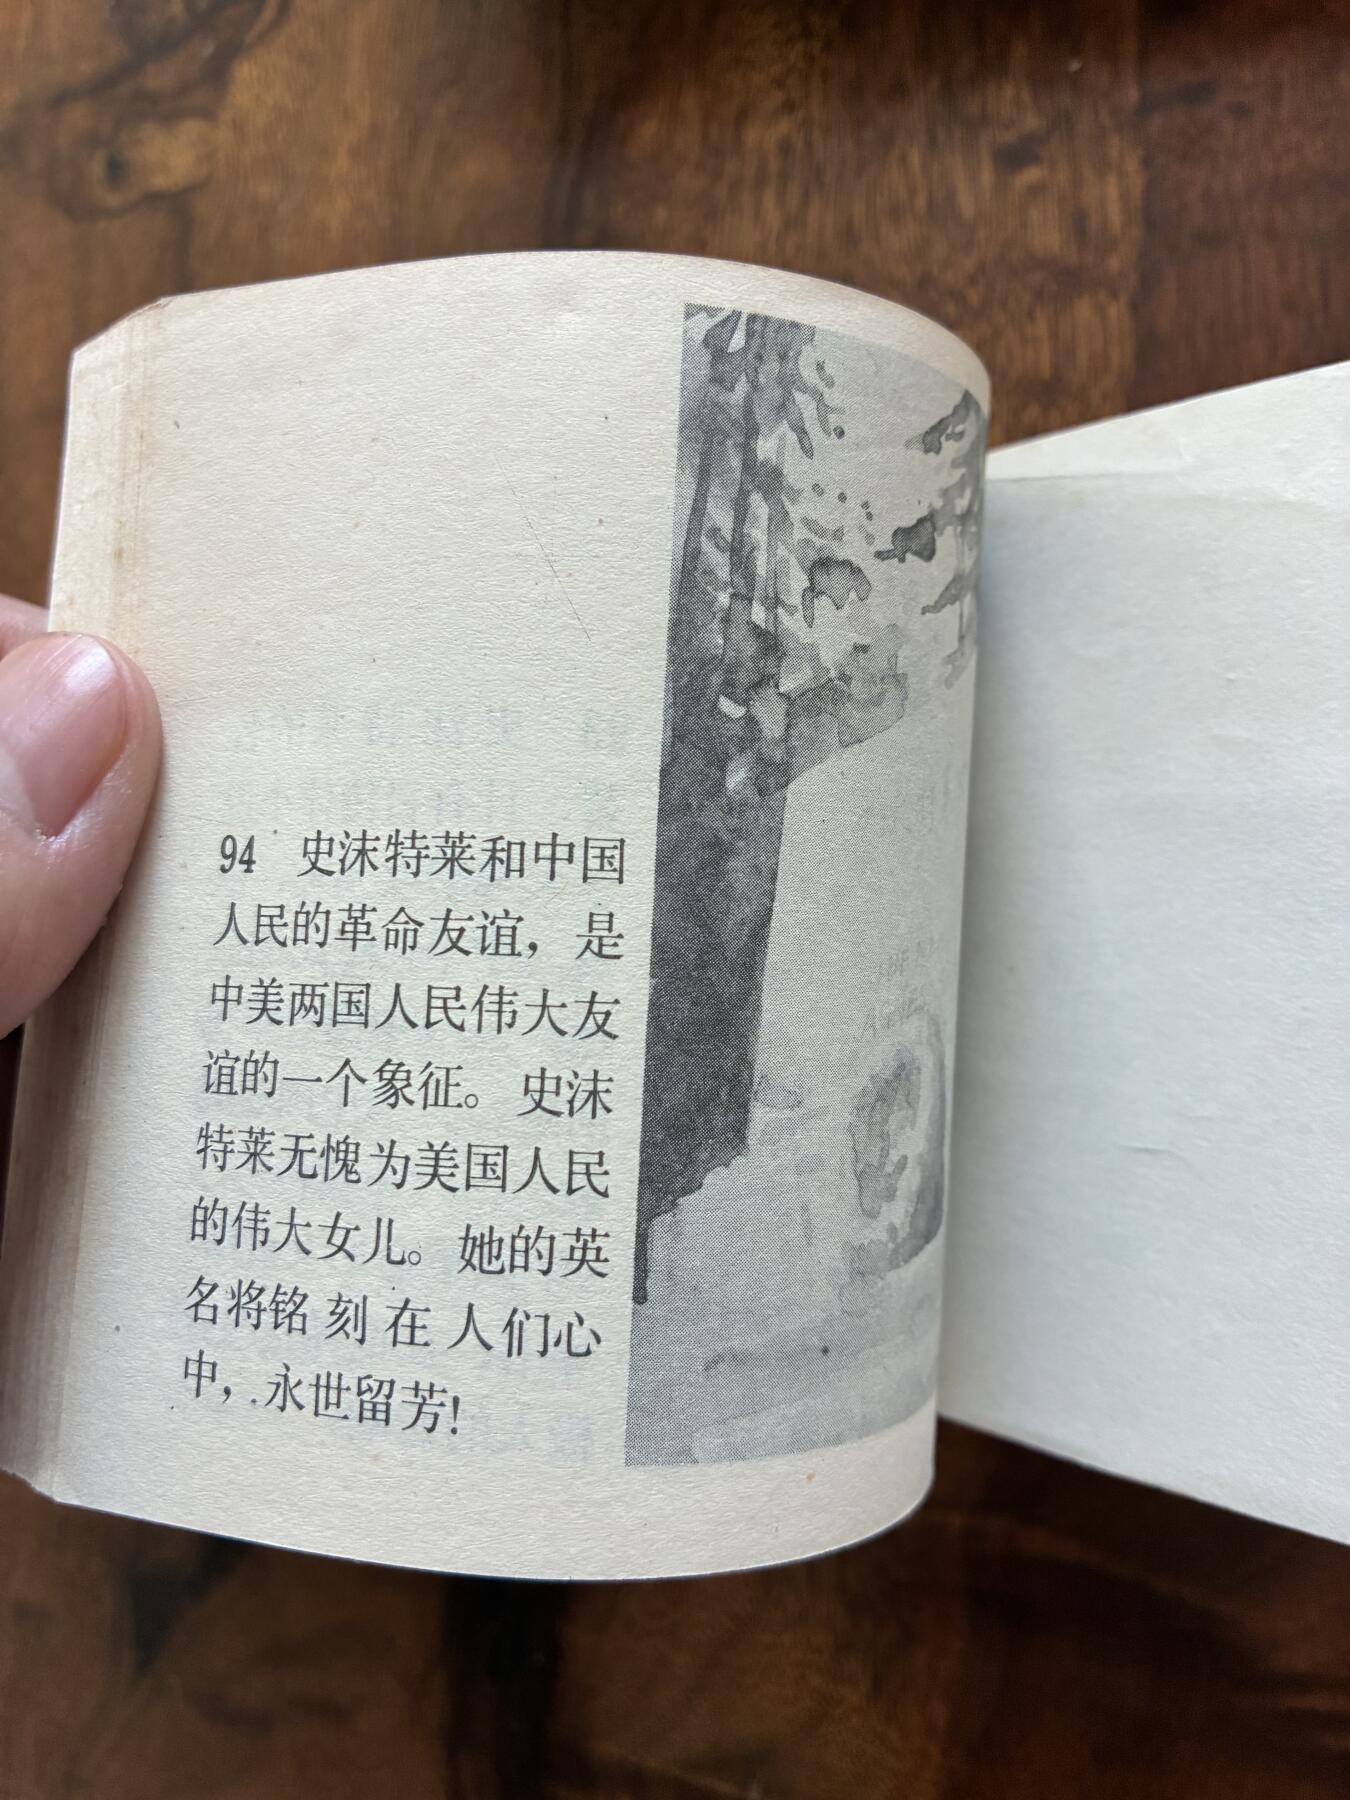 94 史沫特莱和中国
人民的革命友谊，是
中美两国人民伟大友
谊的一个象征。史沫
特莱无愧为美国人民
的伟大女儿。她的英
名将铭刻在人们心
中，永世留芳！